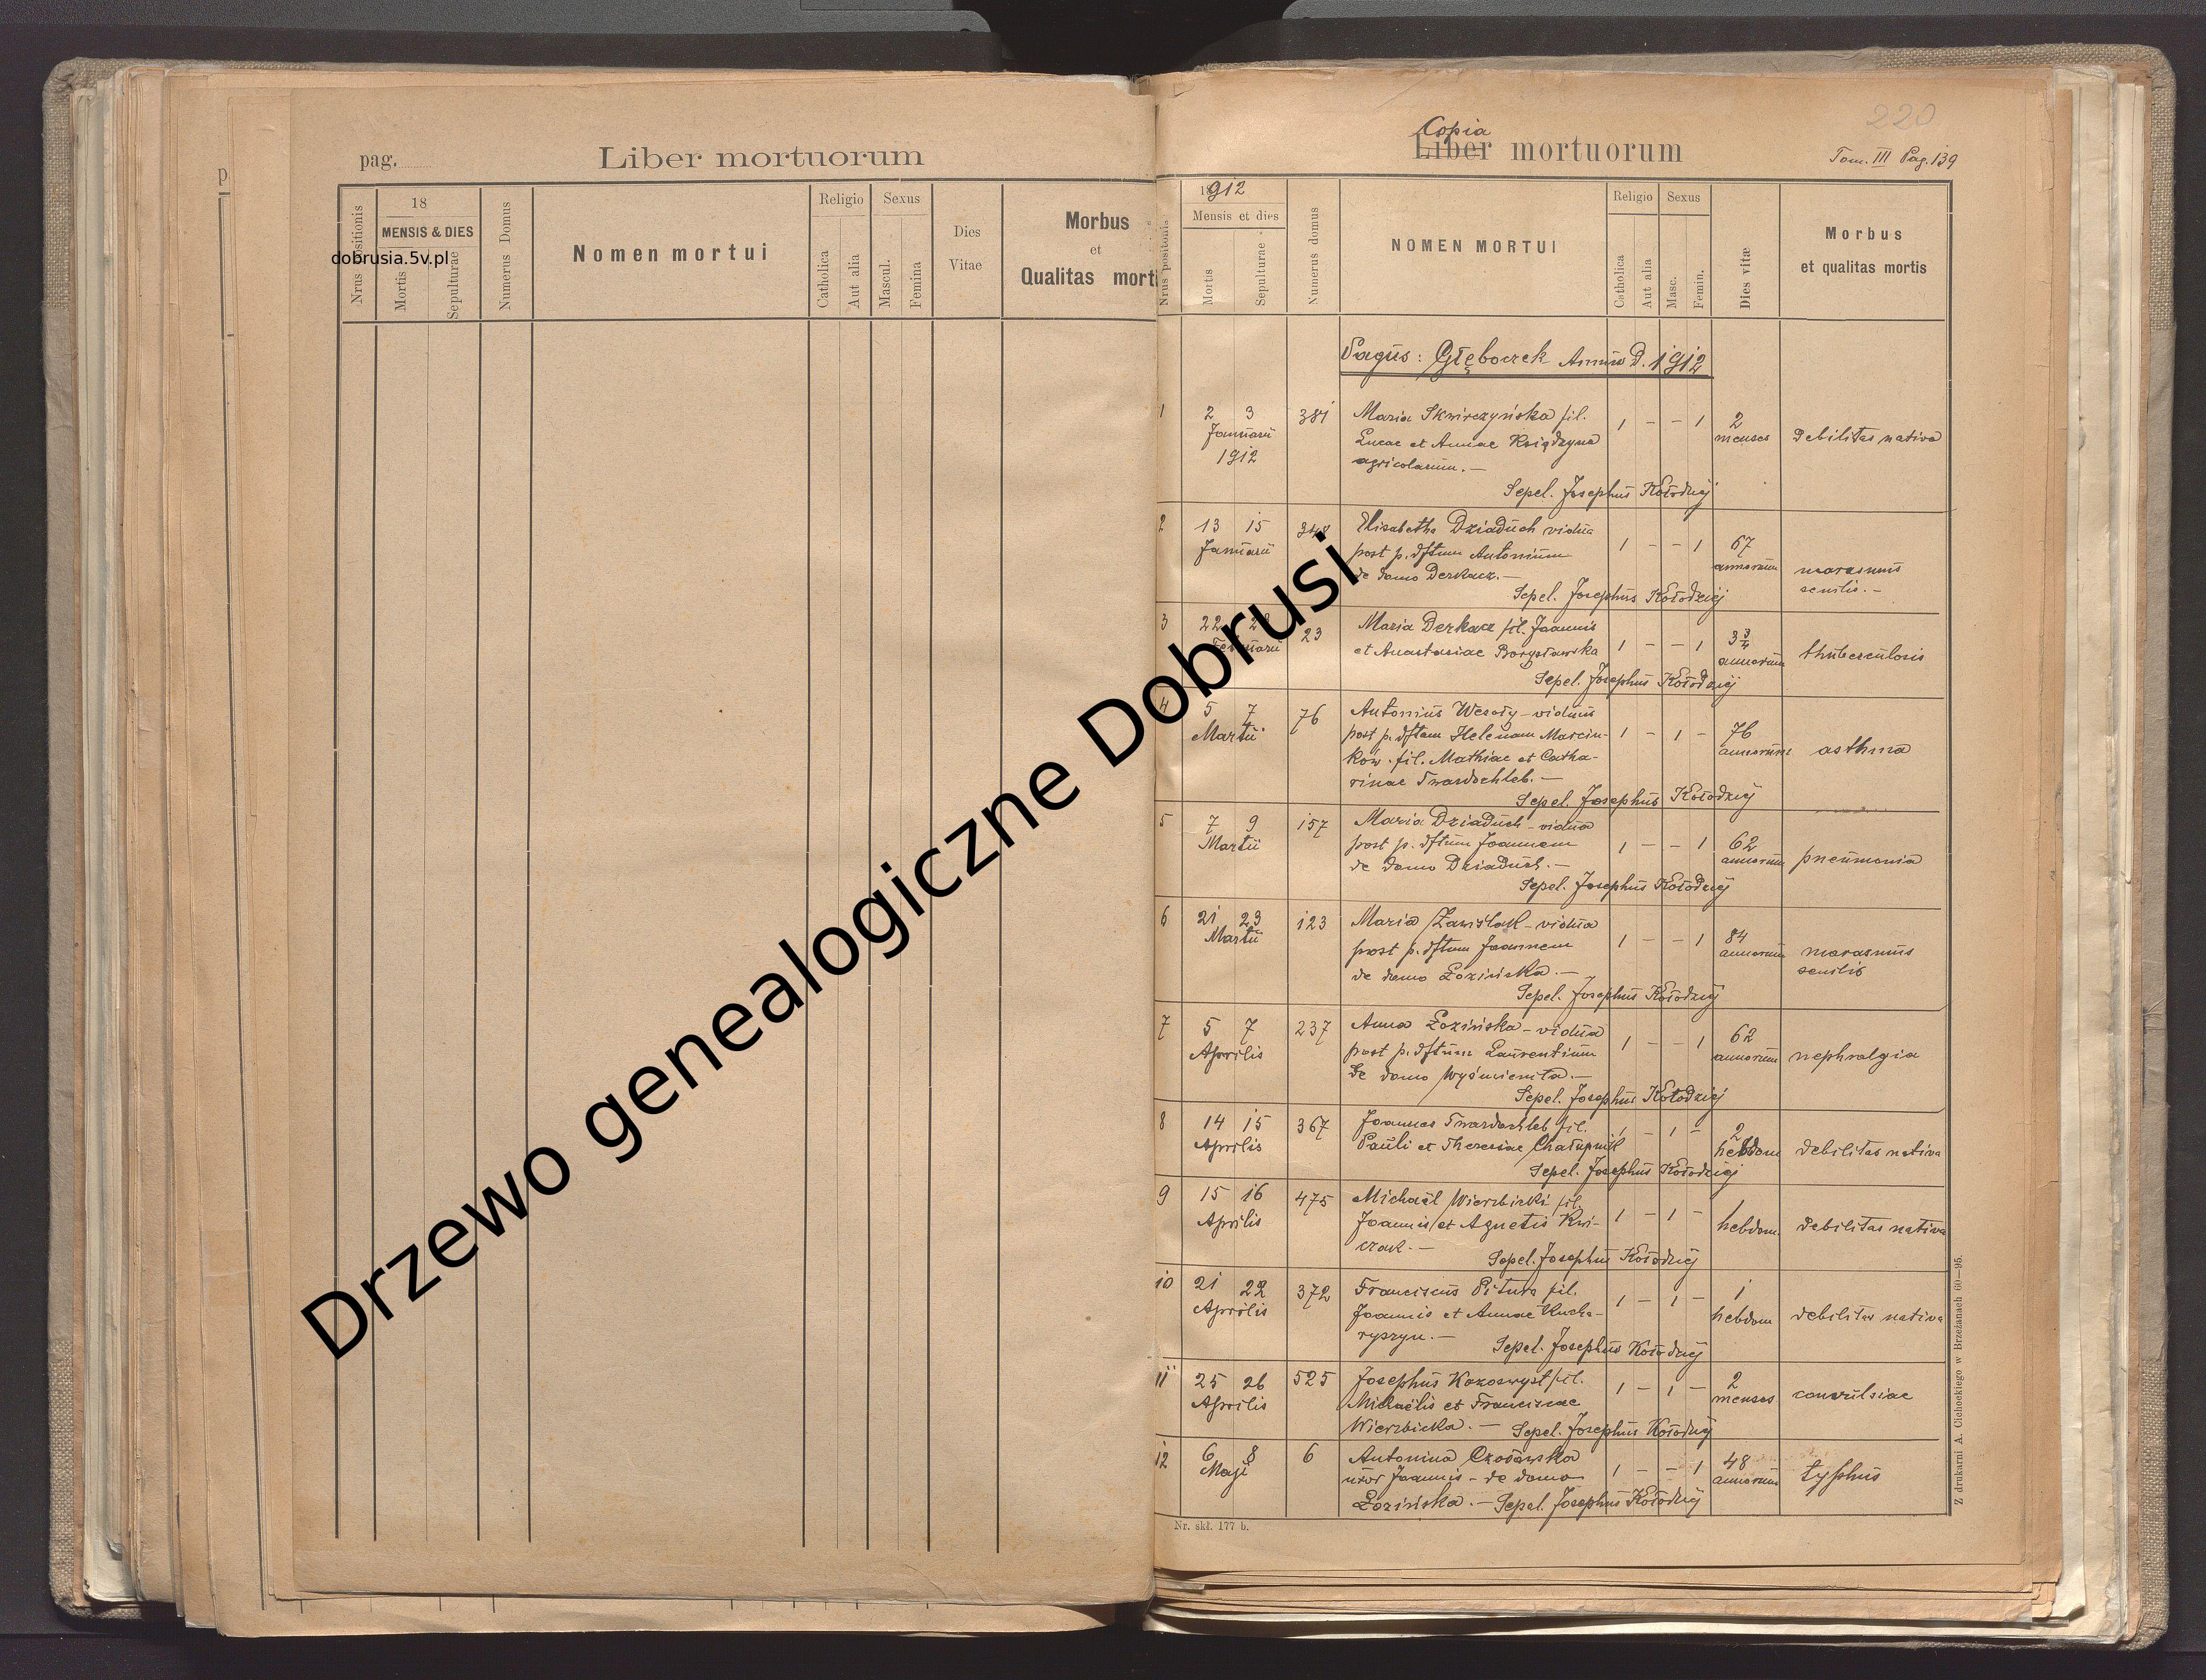 pag.
Liber mortuorum
Nrus positionis
18
MENSIS & DIES
Mortis
Sepulturae
Numerus Domus
Nomen mortui
Religio
Catholica
Aut alia
Sexus
Mascul.
Femina
Dies
Vitae
Morbus
et
Qualitas morti
dobrusia.5v.pl
p
Drzewo genealogiczne Dobrusi
220
Copia
Liber mortuorum
Tom. III Pag. 139
Nrus positionis
1912
Mensis et dies
Mortis
Sepulturae
Numerus domus
NOMEN MORTUI
Religio
Catholica
Aut alia
Sexus
Masc.
Femin.
Dies vitæ
Morbus
et qualitas mortis
Pagus: Głęboczek Anno D. 1912
1 2 3 Januarii 1912 381
Maria Skwirczyńska fil.
Lucae et Annae Książdzyna
agricolarum.—
Sepel. Josephus Kołodziej
1 - - 1 2 menses Debilitas nativa
2 13 15 Januarii
Elisabetha Dziaduch vidua
post p. dftum Antonium
de domo Derkacz.—
Sepel. Josephus Kołodziej
1 - - 1 67 annorum marasmus senilis.-
3 22 23
Maria Derkacz fil. Joannis
et Anastasiae Borysławska
Sepel. Josephus Kołodziej
1 - - 1 3 3/4 annorum thuberculosis
4 5 7 Martii 76
Antonius Wesoły - viduus
post p. dftam Helenam Marcin-
ków. fil. Mathiae et Catha-
rinae Twardochleb.—
Sepel. Josephus Kołodziej
1 - 1 - 76 annorum asthma
5 7 9 Martii 157
Maria Dziaduch - vidua
post p. dftum Joannem
de domo Dziaduch.—
Sepel. Josephus Kołodziej
1 - - 1 62 annorum pneumonia
6 21 23 Martii 123
Maria Zawiślak - vidua
post p. dftum Joannem
de domo Łozińska.—
Sepel. Josephus Kołodziej
1 - - 1 84 annorum marasmus senilis
7 5 7 Aprilis 237
Anna Łozińska - vidua
post p. dftum Laurentium
de domo Wyśmienita.—
Sepel. Josephus Kołodziej
1 - - 1 62 annorum nephralgia
8 14 15 Aprilis 367
Joannes Twardochleb fil.
Pauli et Theresiae Chałupnik
Sepel. Josephus Kołodziej
1 - 1 - 2 hebdom debilitas nativa
9 15 16 Aprilis 475
Michaël Wierzbicki fil.
Joannis et Agnetis Kwi-
czak.—
Sepel. Josephus Kołodziej
1 - 1 - hebdom. debilitas nativa
10 21 22 Aprilis 372
Franciscus Pitura fil.
Joannis et Annae Kucha-
ryszyn.—
Sepel. Josephus Kołodziej
1 - 1 - 1 hebdom debilitas nativa
11 25 26 Aprilis 525
Josephus Kozoswyst fil.
Michaëlis et Franciscae
Wierzbicka.— Sepel. Josephus Kołodziej
1 - 1 - 2 menses convulsiae
12 6 8 Maji 6
Antonina Czołowska
uxor Joannis - de domo
Łozińska.— Sepel. Josephus Kołodziej
1 - - 1 48 annorum typhus
Nr. skł. 177 b.
Z drukarni A. Cichockiego w Brzeżanach 60—95.